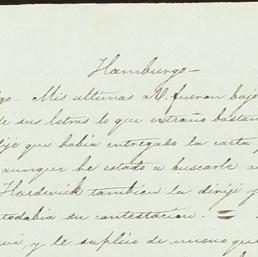 Hamburgo—
go. Mis ultimas a V. fueron bajo
de sus letras lo que extraño bastan
dije que habia entregado la carta
aunque he estado a buscarle a
Hardwick tambien la dirijé y
todabia su contestacion. =
ui, y le suplico de nuevo que